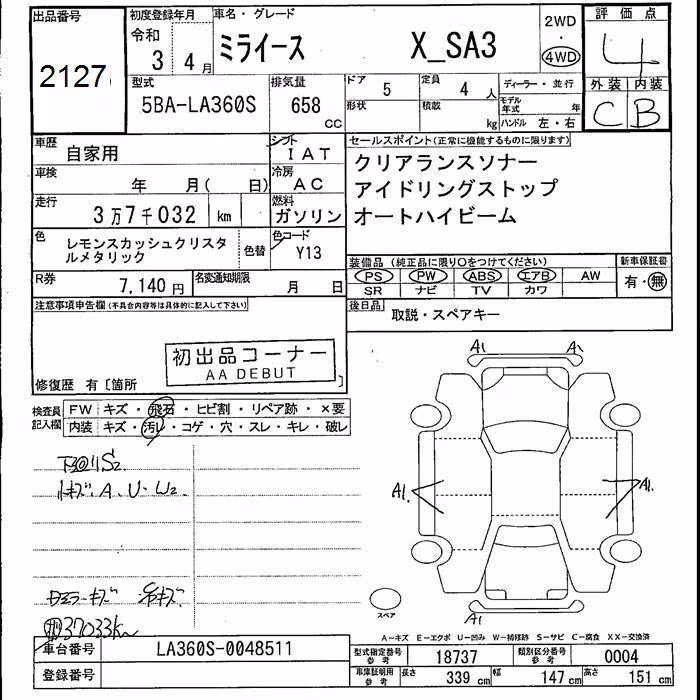 出品番号 初度登録年月 車名・グレード 2WD 評価点
2127 令和 3 4月 ミライース X_SA3 4WD 4
型式 排気量 ドア 5 定員 4人 ディーラー・並行 外装 内装
5BA-LA360S 658 cc 形状 積載 kg モデル年式 年 ハンドル 左・右 C B
車歴 自家用 シフト IAT セールスポイント(正常に機能するものに限ります)
車検 年 月( 日) 冷房 AC クリアランスソナー
走行 3万7千032 km 燃料 ガソリン アイドリングストップ
オートハイビーム
色 レモンスカッシュクリスタルメタリック 色替 色コード Y13
装備品(純正品に限り○をつけてください) 新車保証書
PS PW ABS エアB AW 有・無
SR ナビ TV カワ
R券 7,140円 名変通知期限 月 日
後日品 取説・スペアキー
注意事項申告欄(不具合内容等は具体的に記入して下さい)
初出品コーナー
AA DEBUT
修復歴 有〔箇所 〕
検査員記入欄 FW キズ・飛石・ヒビ割・リペア跡・×要
内装 キズ・汚レ・コゲ・穴・スレ・キレ・破レ
A1 A1
S2
キズ.A.U.W2
A1. A1.
37033km
スペア
A1
A—キズ E—エクボ U—凹み W—補修跡 S—サビ C—腐食 XX—交換済
車台番号 LA360S-0048511 型式指定番号 参考 18737 類別区分番号 参考 0004
登録番号 車庫証明用 参考 長さ 339cm 幅 147cm 高さ 151cm